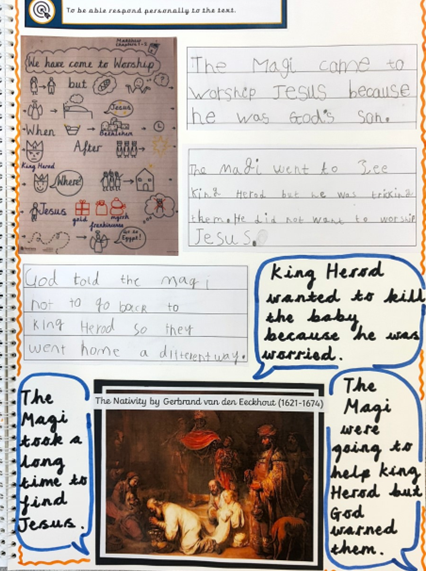 To be able respond personally to the text.
Matthew
Chapters 1-2
We have come to Worship
but
Jesus
Bethlehem
When
After
King Herod
Where?
Jesus
gold
myrrh
frankincense
Go to
Egypt!
The Magi came to
worship Jesus because
he was God's son.
The Magi went to See
king Herod but he was tricking
them. He did not want to worship
Jesus.
God told the magi
not to go back to
king Herod so they
went home a different way.
King Herod
wanted to kill
the baby
because he was
worried.
The
Magi
took a
long
time to
find
Jesus.
The Nativity by Gerbrand van den Eeckhout (1621-1674)
The
Magi
were
going to
help king
Herod but
God
warned
them.